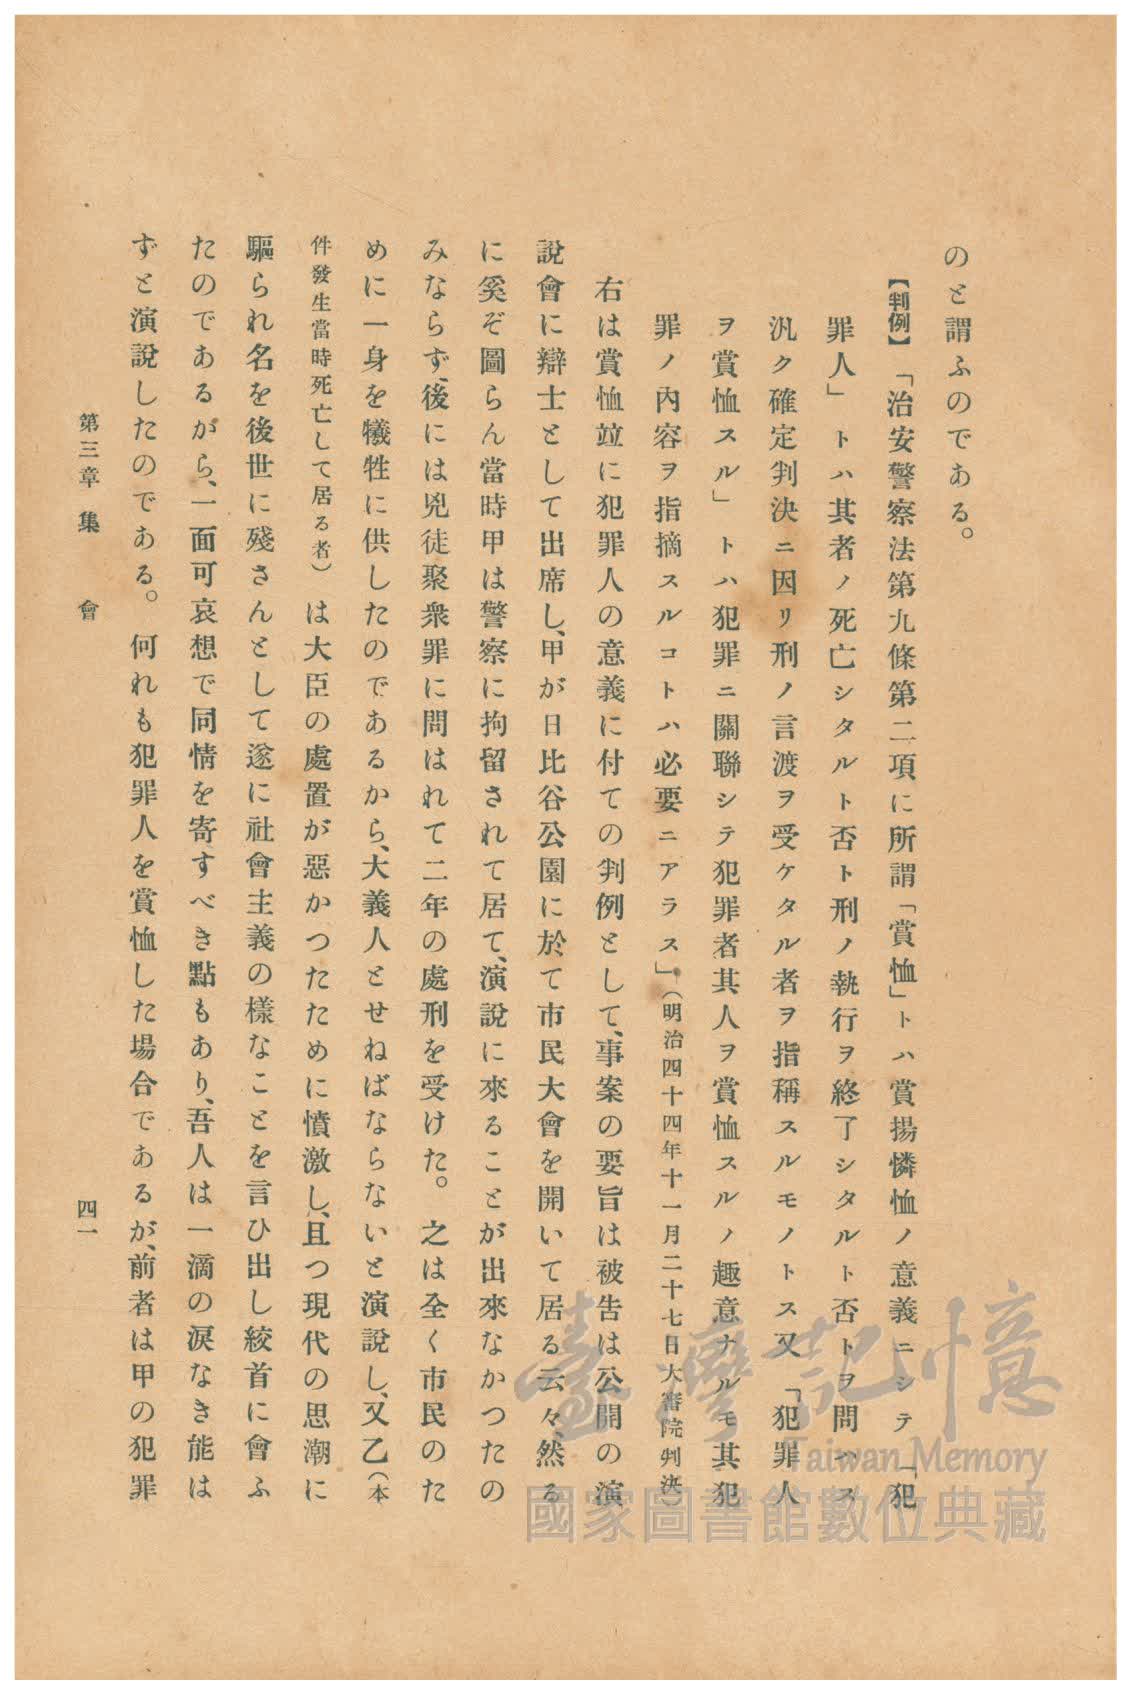 のと謂ふのである。
【判例】「治安警察法第九條第二項に所謂「賞恤」トハ賞揚憐恤ノ意義ニシテ「犯
罪人」トハ其者ノ死亡シタルト否ト刑ノ執行ヲ終了シタルト否トヲ問ハス
汎ク確定判決ニ因リ刑ノ言渡ヲ受ケタル者ヲ指稱スルモノトス又「犯罪人
ヲ賞恤スル」トハ犯罪ニ關聯シテ犯罪者其人ヲ賞恤スルノ趣意ナルモ其犯
罪ノ內容ヲ指摘スルコトハ必要ニアラス」(明治四十四年十一月二十七日大審院判決)
右は賞恤竝に犯罪人の意義に付ての判例として、事案の要旨は被告は公開の演
說會に辯士として出席し、甲が日比谷公園に於て市民大會を開いて居る云々、然る
に奚ぞ圖らん當時甲は警察に拘留されて居て、演說に來ることが出來なかつたの
みならず、後には兇徒聚衆罪に問はれて二年の處刑を受けた。之は全く市民のた
めに一身を犧牲に供したのであるから、大義人とせねばならないと演說し、又乙(本
件發生當時死亡して居る者)は大臣の處置が惡かつたために憤激し、且つ現代の思潮に
驅られ名を後世に殘さんとして遂に社會主義の樣なことを言ひ出し絞首に會ふ
たのであるがら、一面可哀想で同情を寄すべき點もあり、吾人は一滴の淚なき能は
ずと演說したのである。何れも犯罪人を賞恤した場合であるが、前者は甲の犯罪
第三章 集 會
四一
臺灣記憶
Taiwan Memory
國家圖書館數位典藏